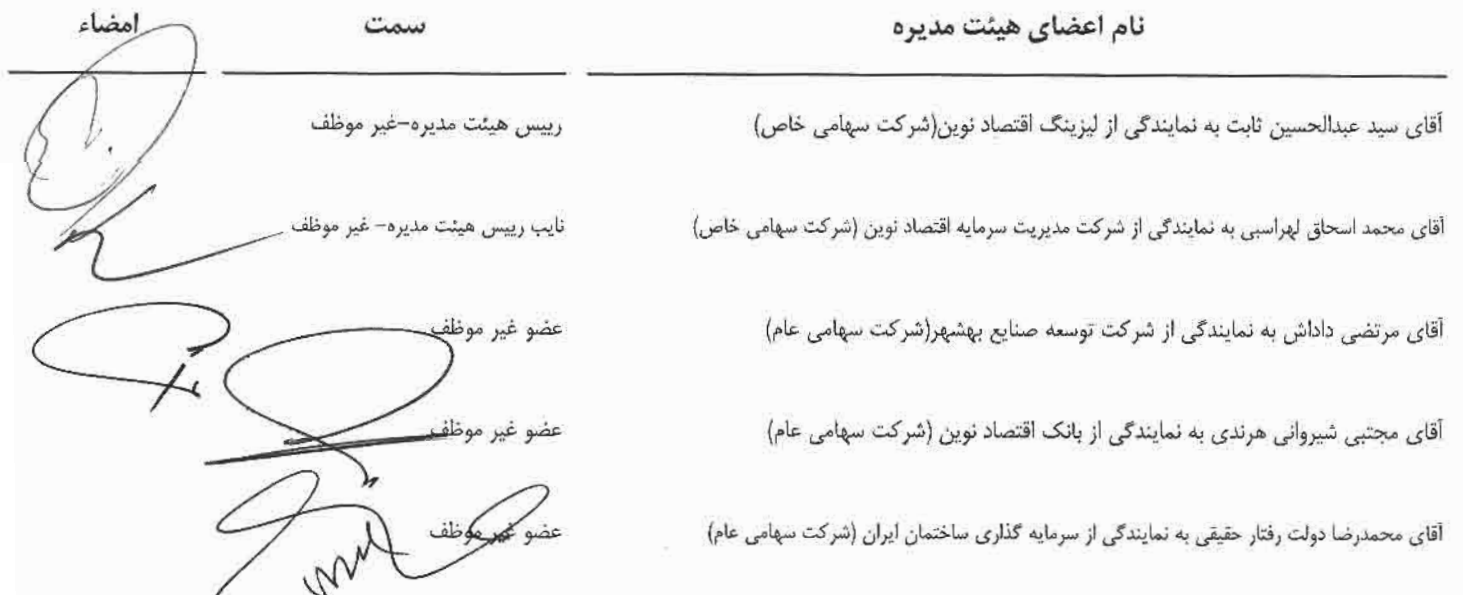 نام اعضای هیئت مدیره سمت امضاء
آقای سید عبدالحسین ثابت به نمایندگی از لیزینگ اقتصاد نوین(شرکت سهامی خاص) رییس هیئت مدیره-غیر موظف
آقای محمد اسحاق لهراسبی به نمایندگی از شرکت مدیریت سرمایه اقتصاد نوین (شرکت سهامی خاص) نایب رییس هیئت مدیره- غیر موظف
آقای مرتضی داداش به نمایندگی از شرکت توسعه صنایع بهشهر(شرکت سهامی عام) عضو غیر موظف
آقای مجتبی شیروانی هرندی به نمایندگی از بانک اقتصاد نوین (شرکت سهامی عام) عضو غیر موظف
آقای محمدرضا دولت رفتار حقیقی به نمایندگی از سرمایه گذاری ساختمان ایران (شرکت سهامی عام) عضو غیر موظف